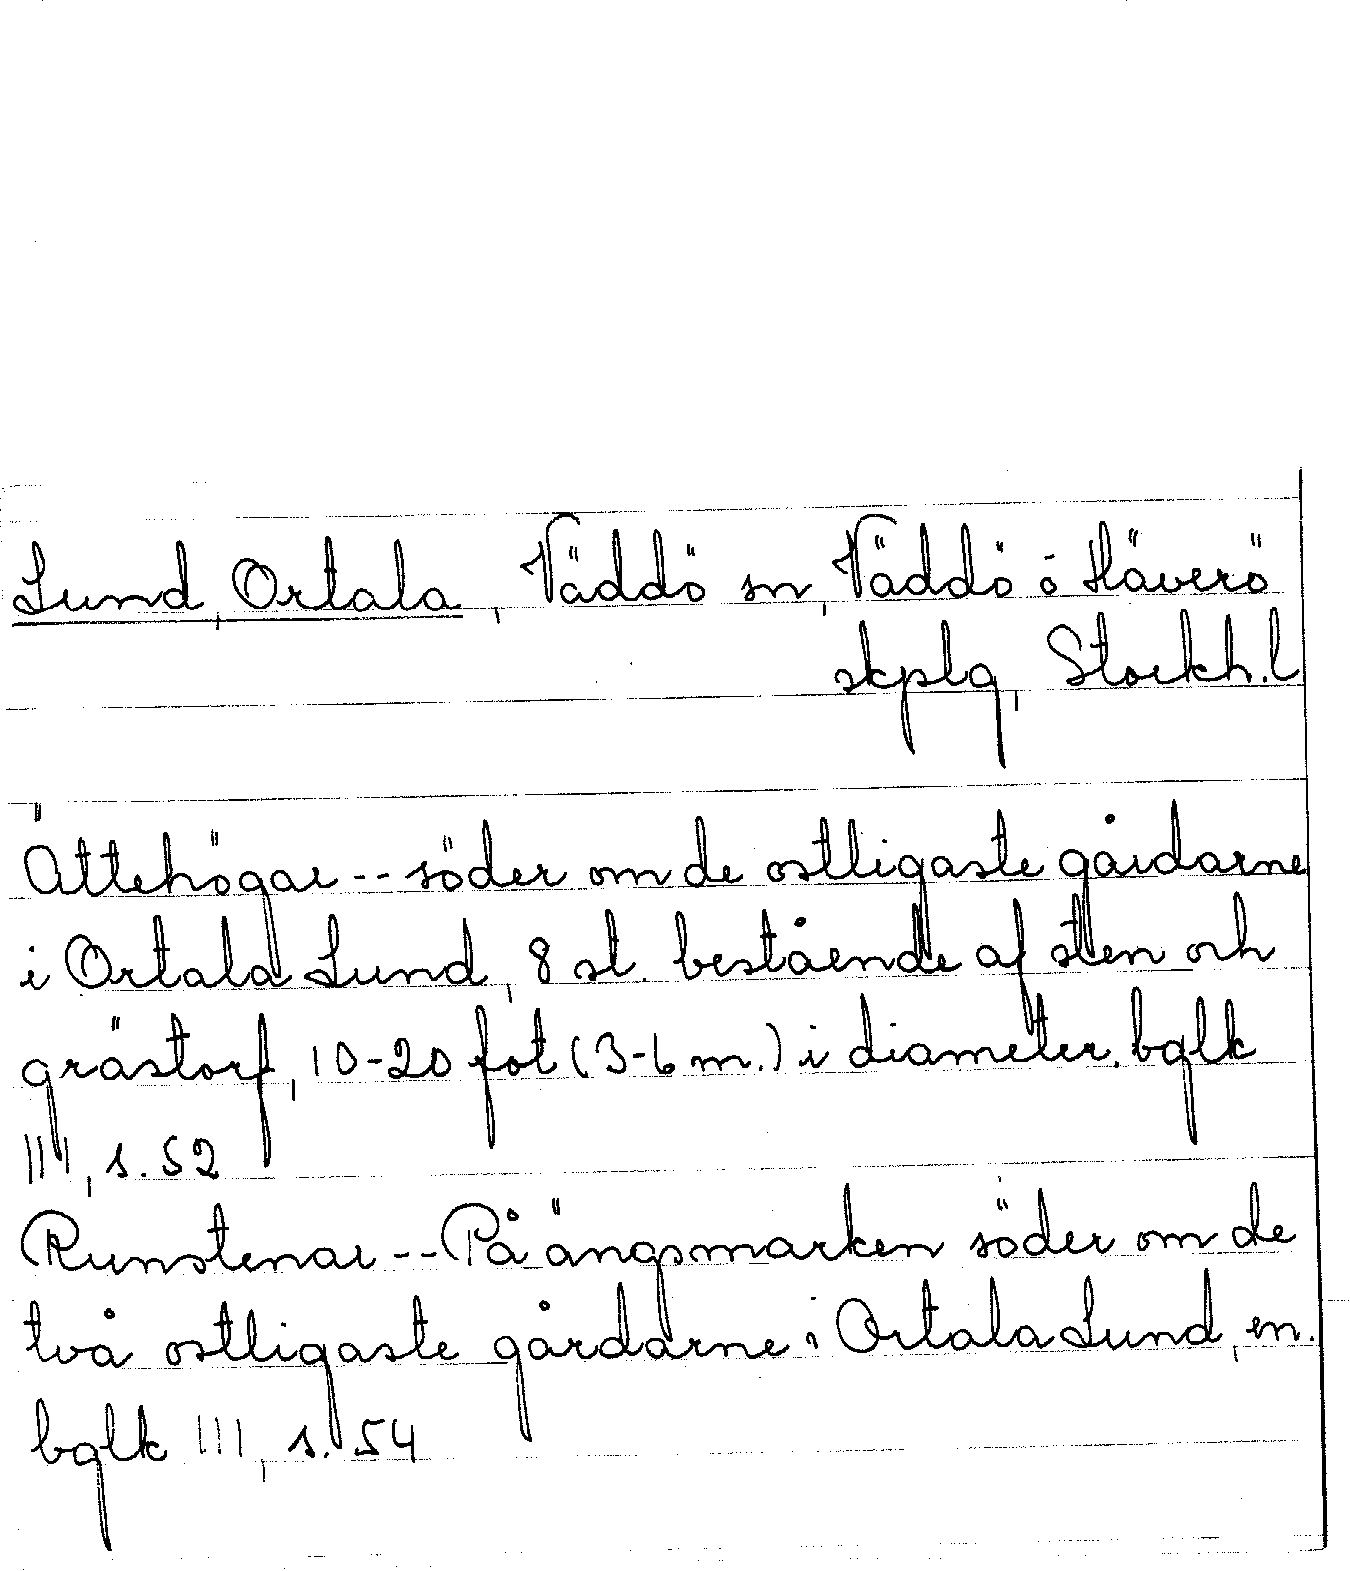 Lund, Ortala, Väddö sn, Väddö o Häverö
skplg, Stockh.l
Ättehögar -- söder om de ostligaste gårdarne
i Ortala Lund, 8 st. bestående af sten och
grästorf, 10-20 fot (3-6 m.) i diameter. bglk
III, s. 52
Runstenar -- På ängsmarken söder om de
två ostligaste gårdarne i Ortala Lund, en.
bglk III, s. 54